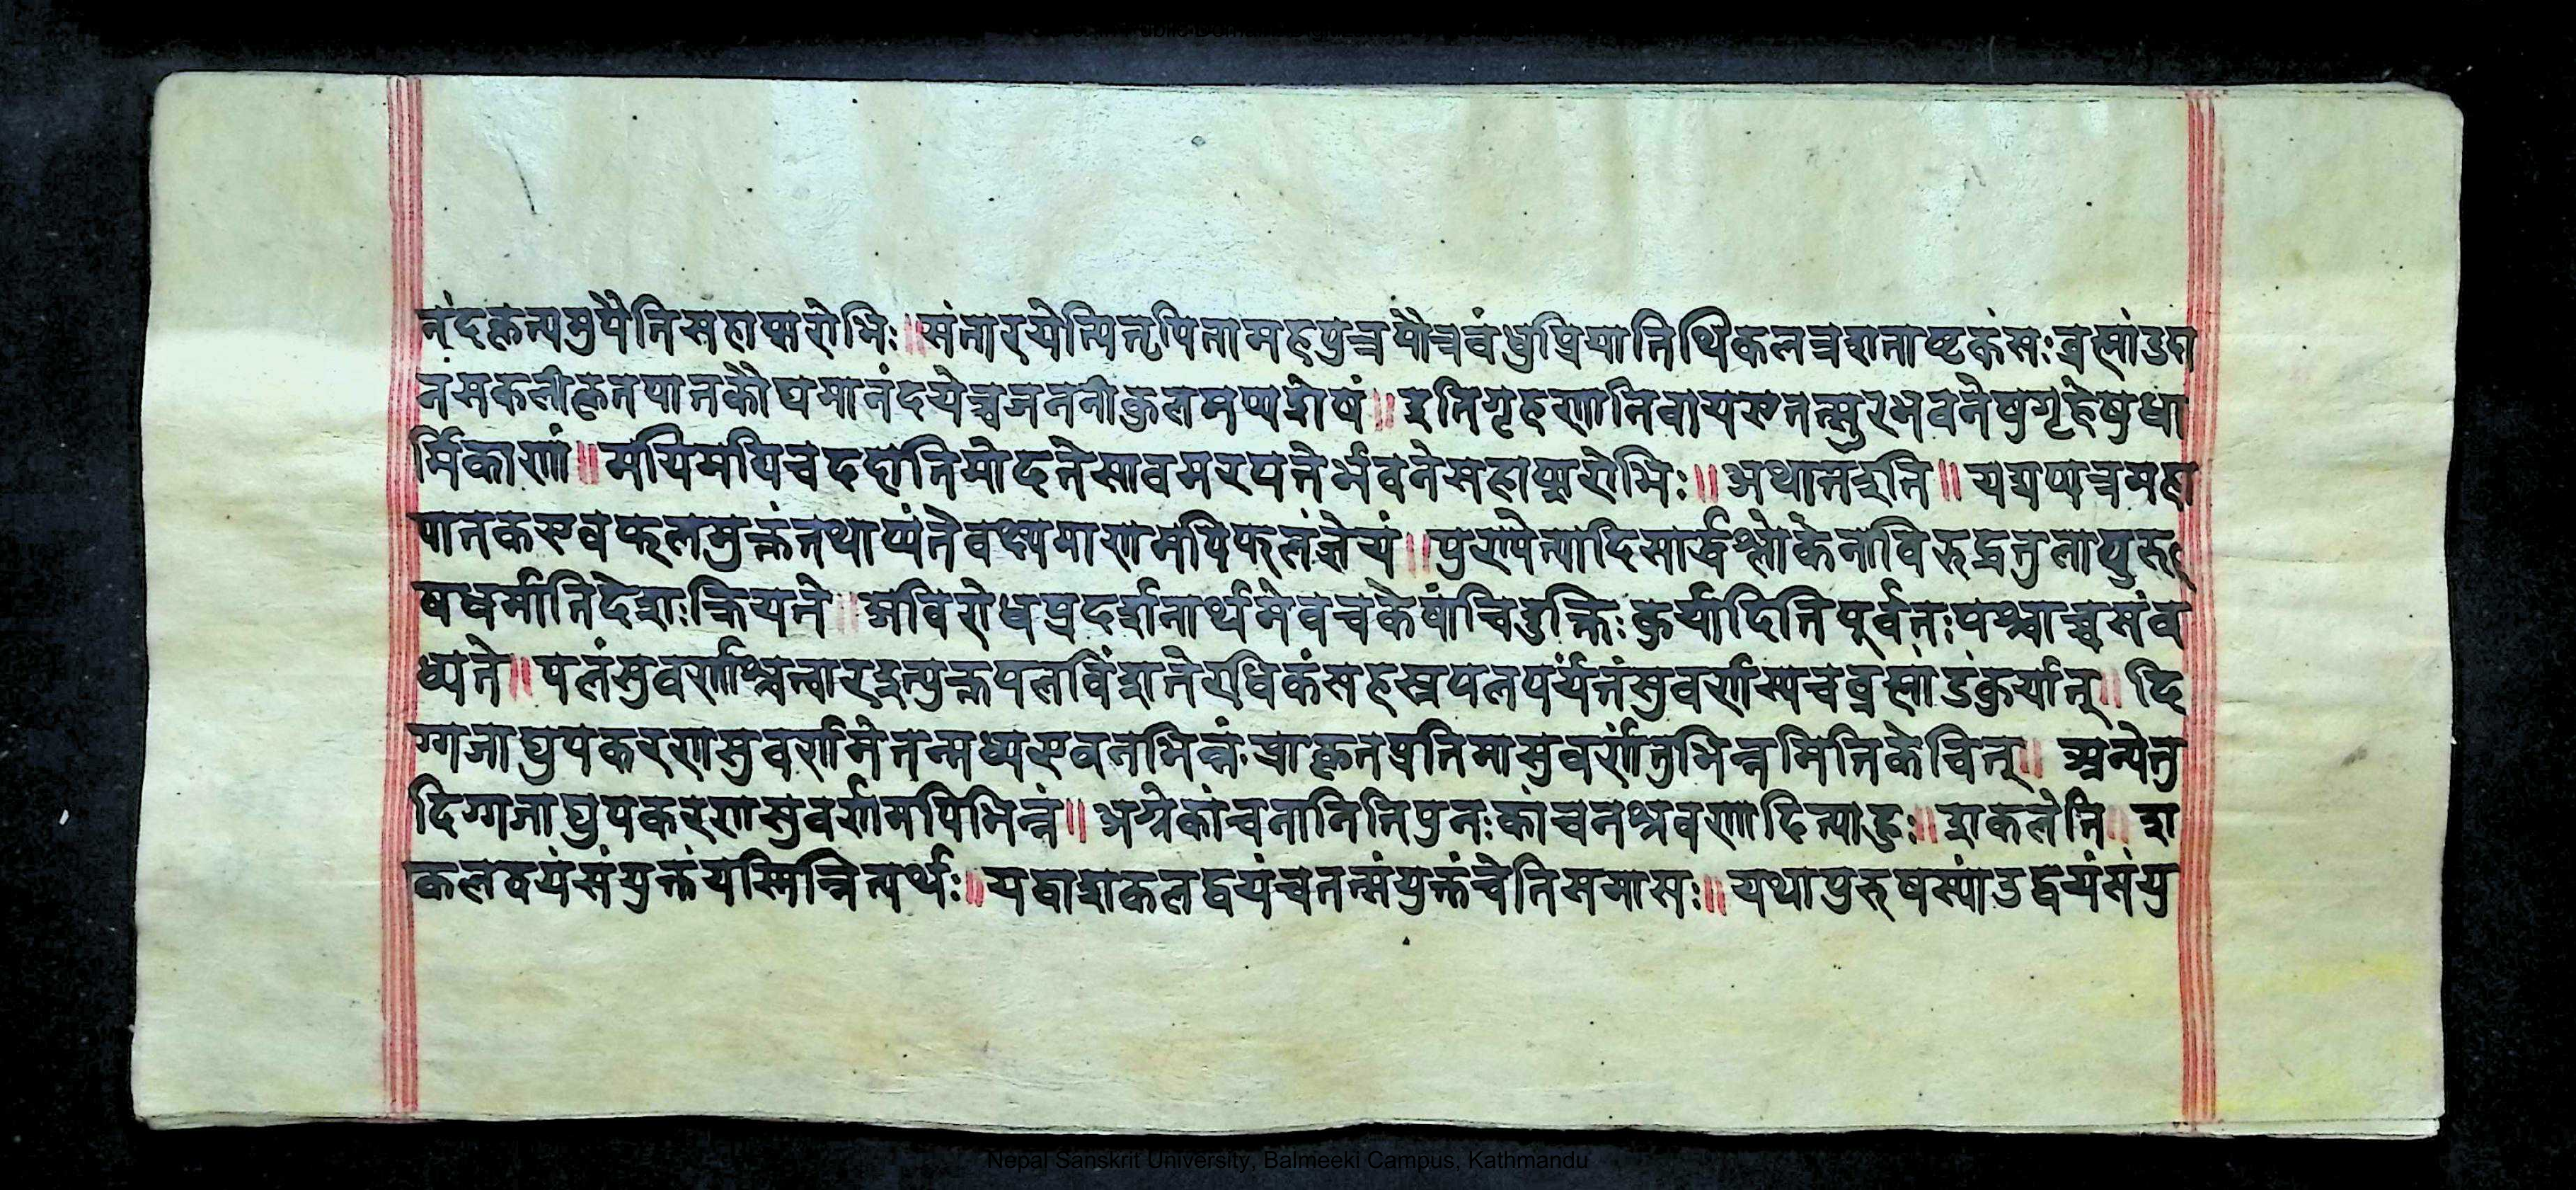 नंदकृत्यमुपैतिसहाप्सरोभिः ॥ संतारयेत्पितृपितामहपुत्रपौत्रबंधुप्रियातिथिकलत्रशताष्टकंसः ब्रह्मांडदा
नंसकलीकृतपातकौघमानंदयेच्चजननीकुलमप्यशेषं ॥ इतिगृहणातिवायएतत्सुरभवनेषुगृहेषुधा
र्मिकाणां ॥ मयिमयिचददातिमोदतेसावमरपतेर्भवनेसहाप्सरोभिः ॥ अथातइति ॥ यद्यप्यत्रमहा
पातकएवफलमुक्तंतथाप्यंतेवक्ष्यमाणमपिफलंज्ञेयं ॥ पुण्येत्यादिसार्धश्लोकेनाविरुद्धतुलापुरु
षधर्मातिदेशःक्रियते ॥ अविरोधप्रदर्शनार्थमेवचकेषांचिदुक्तिः कुर्यादितिपूर्वतःपश्चाच्चसंब
ध्यते ॥ पलंसुवर्णाश्चत्वारइत्युक्तपलविंशतेरधिकंसहस्रपलपर्यंतंसुवर्णास्यचब्रह्मांडंकुर्यात् ॥ दि
ग्गजाद्युपकरणसुवर्णमेतन्मध्यएवनभिन्नंप्राक्कृतप्रतिमासुवर्णंतुभिन्नमितिकेचित् ॥ अन्येतु
दिग्गजाद्युपकरणसुवर्णमपिभिन्नं ॥ अग्रेकांचनानितिपुनःकांचनश्रवणादित्याहुः ॥ शकलेति ॥ श
कलद्वयंसंयुक्तंयस्मिन्नित्यर्थः ॥ यद्वाशकलद्वयंचतत्संयुक्तंचेतिसमासः ॥ यथापुरुषस्यांडद्वयंसंयु
Nepal Sanskrit University, Balmeeki Campus, Kathmandu